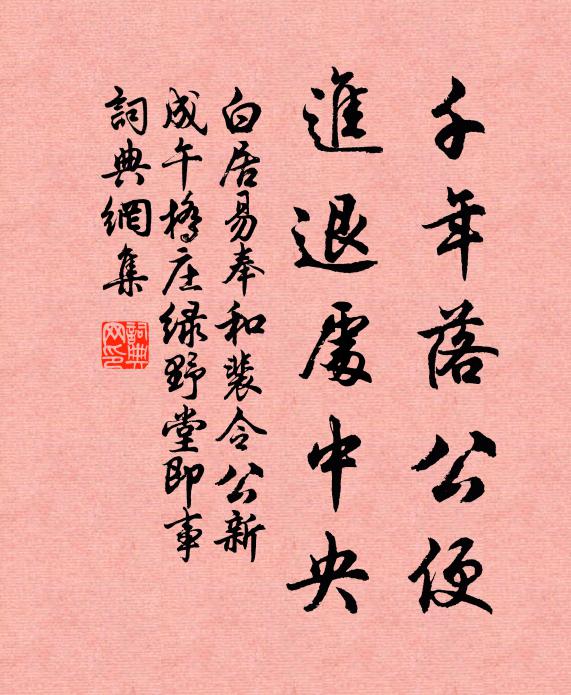 千年落公便
進退處中央
白居易奉和裴令公新
成午橋庄緑野堂即事
詞典網集
詞典
网印